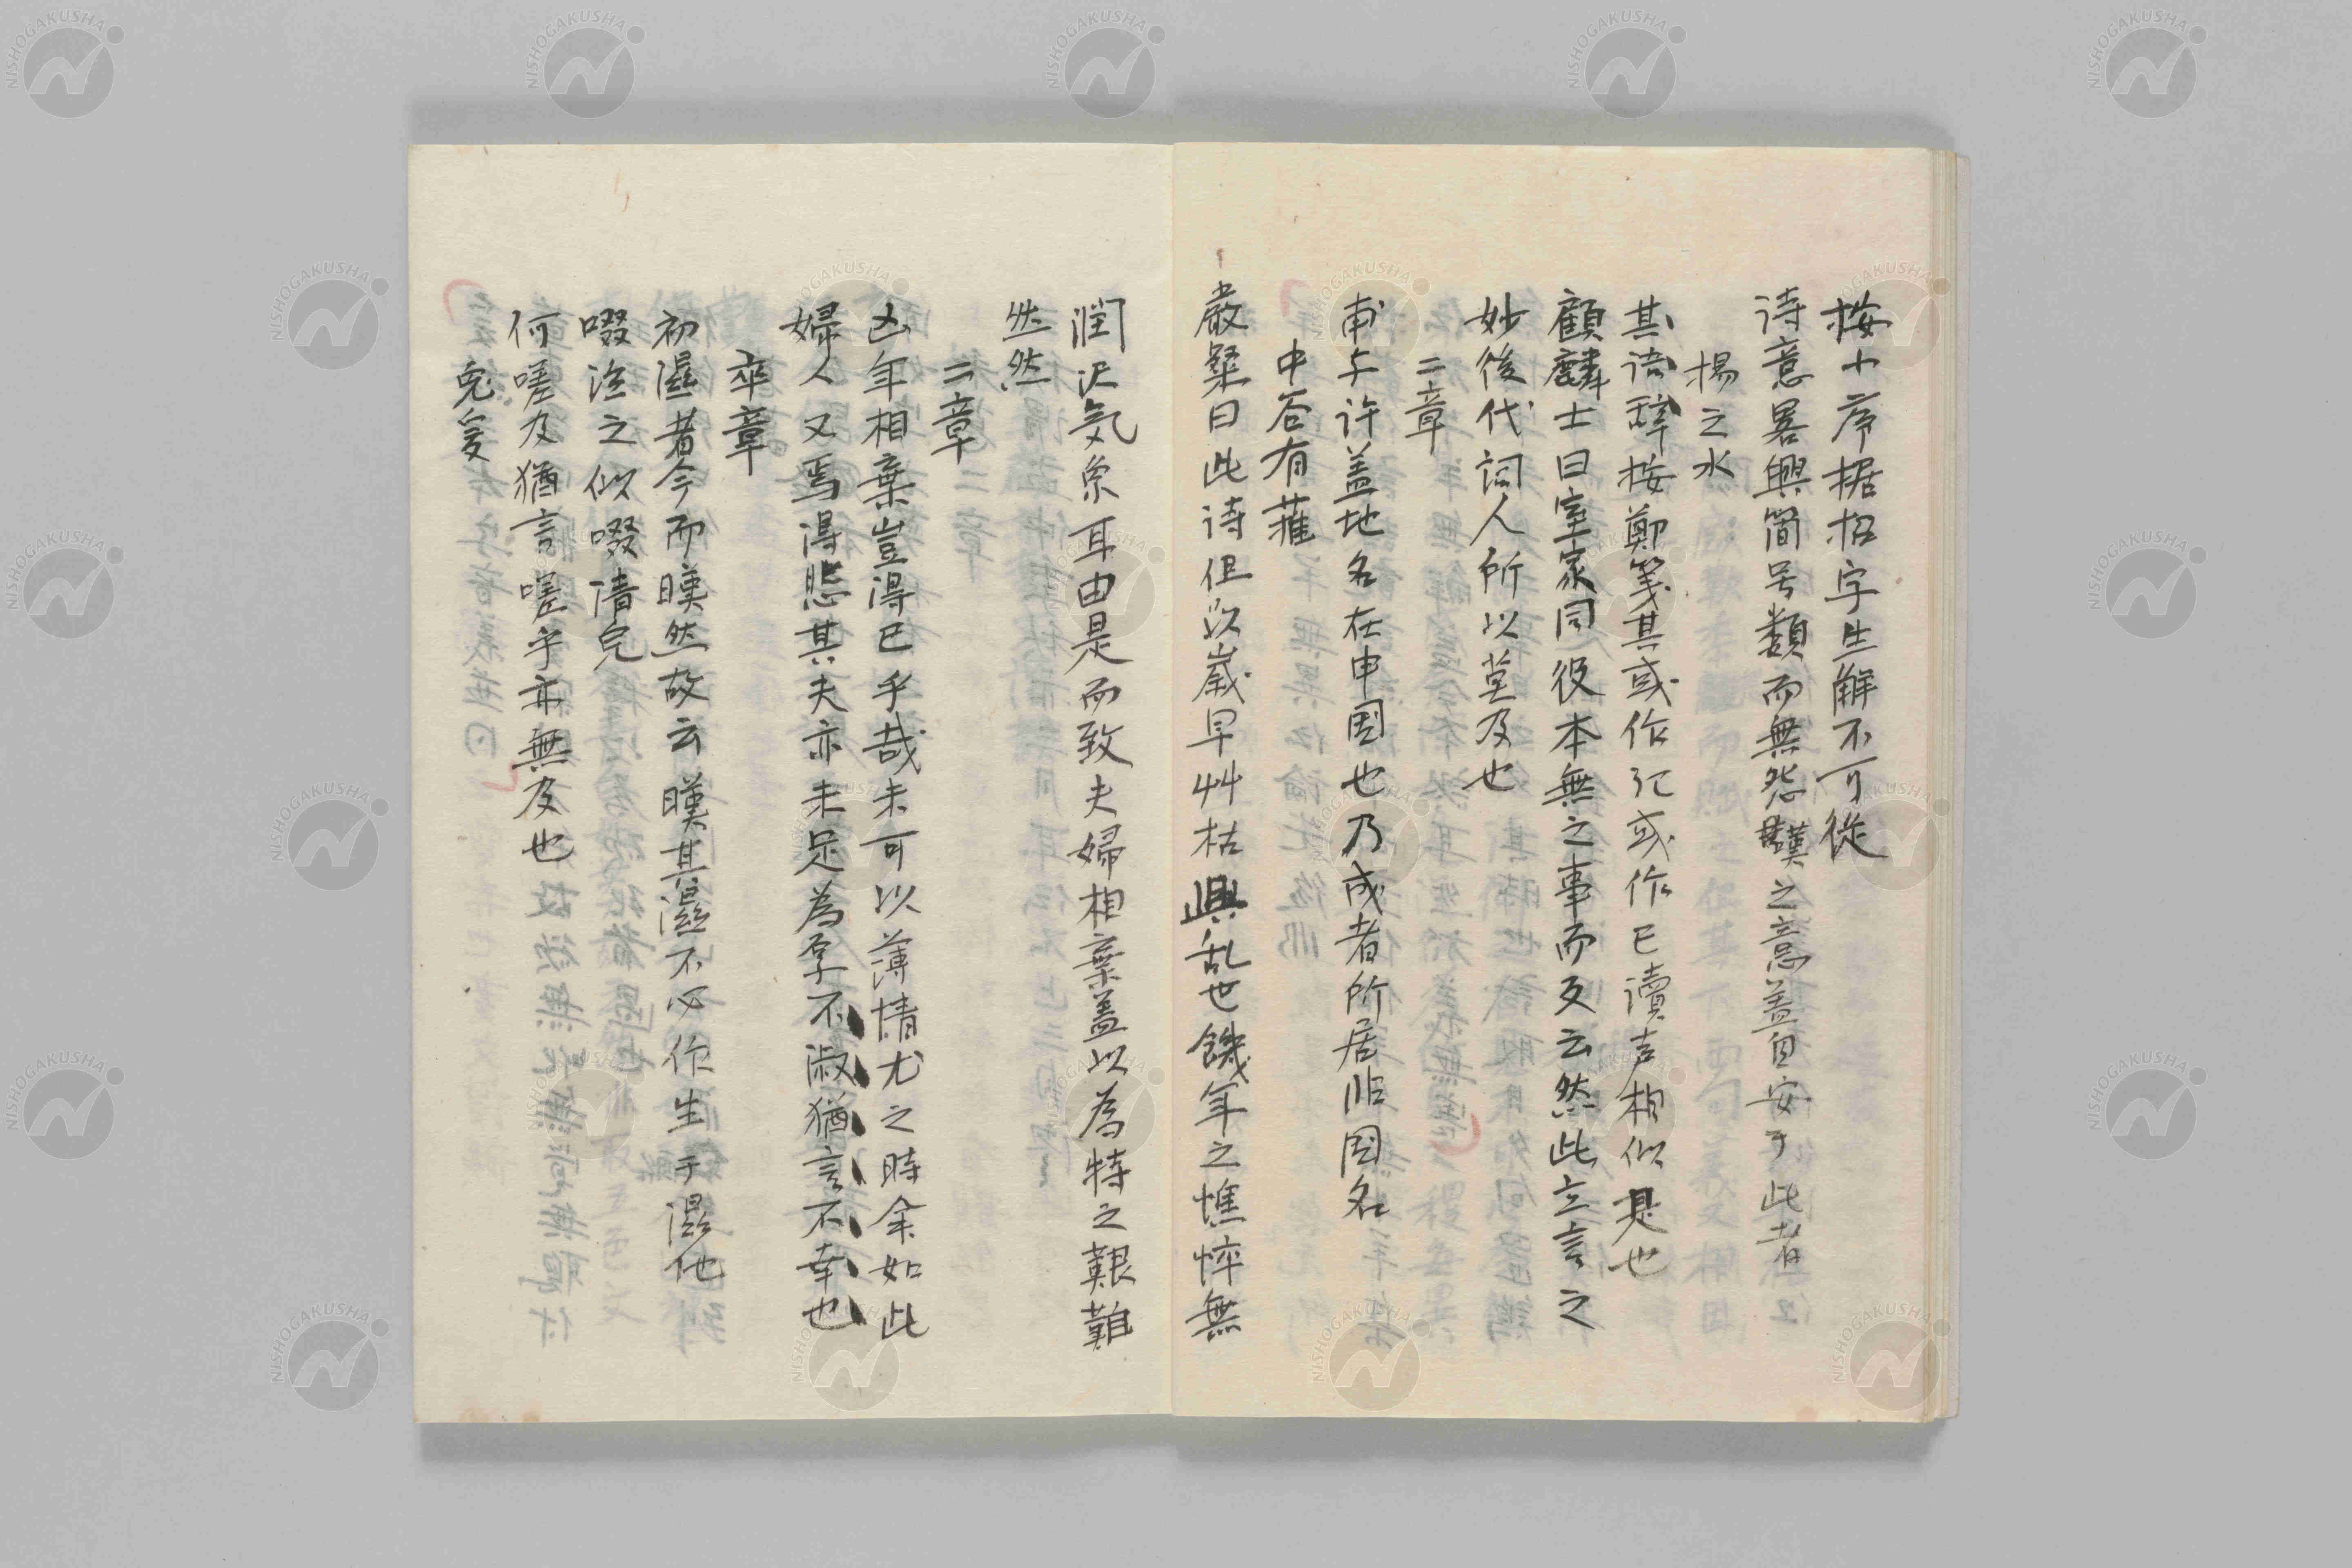 按小序据招字生解不可從
詩意畧與簡兮類而無怨懟之意蓋自安于此者
揚之水
其語辞按鄭箋其或作记或作已讀声相似是也
顧麟士曰室家同役本無之事而又云然此立言之
妙後代詞人所以莫及也
二章
甫与许盖地名在申国也乃戍者所居非国名
中谷有蓷
嚴粲曰此诗但以嵗旱艸枯興乱世饑年之憔悴無
潤沢気象耳由是而致夫婦相棄盖以為特之艱難
然
二章
凶年相棄豈得已乎哉未可以薄情尤之時余如此
婦人又焉得悲其夫亦未足為厚不淑猶言不幸也
卒章
初濕者今而暵然故云暵其濕不必作生于濕他
啜泣之似啜清皃
何嗟及猶言嗟乎亦無及也
兔爰
NISHOGAKUSHA